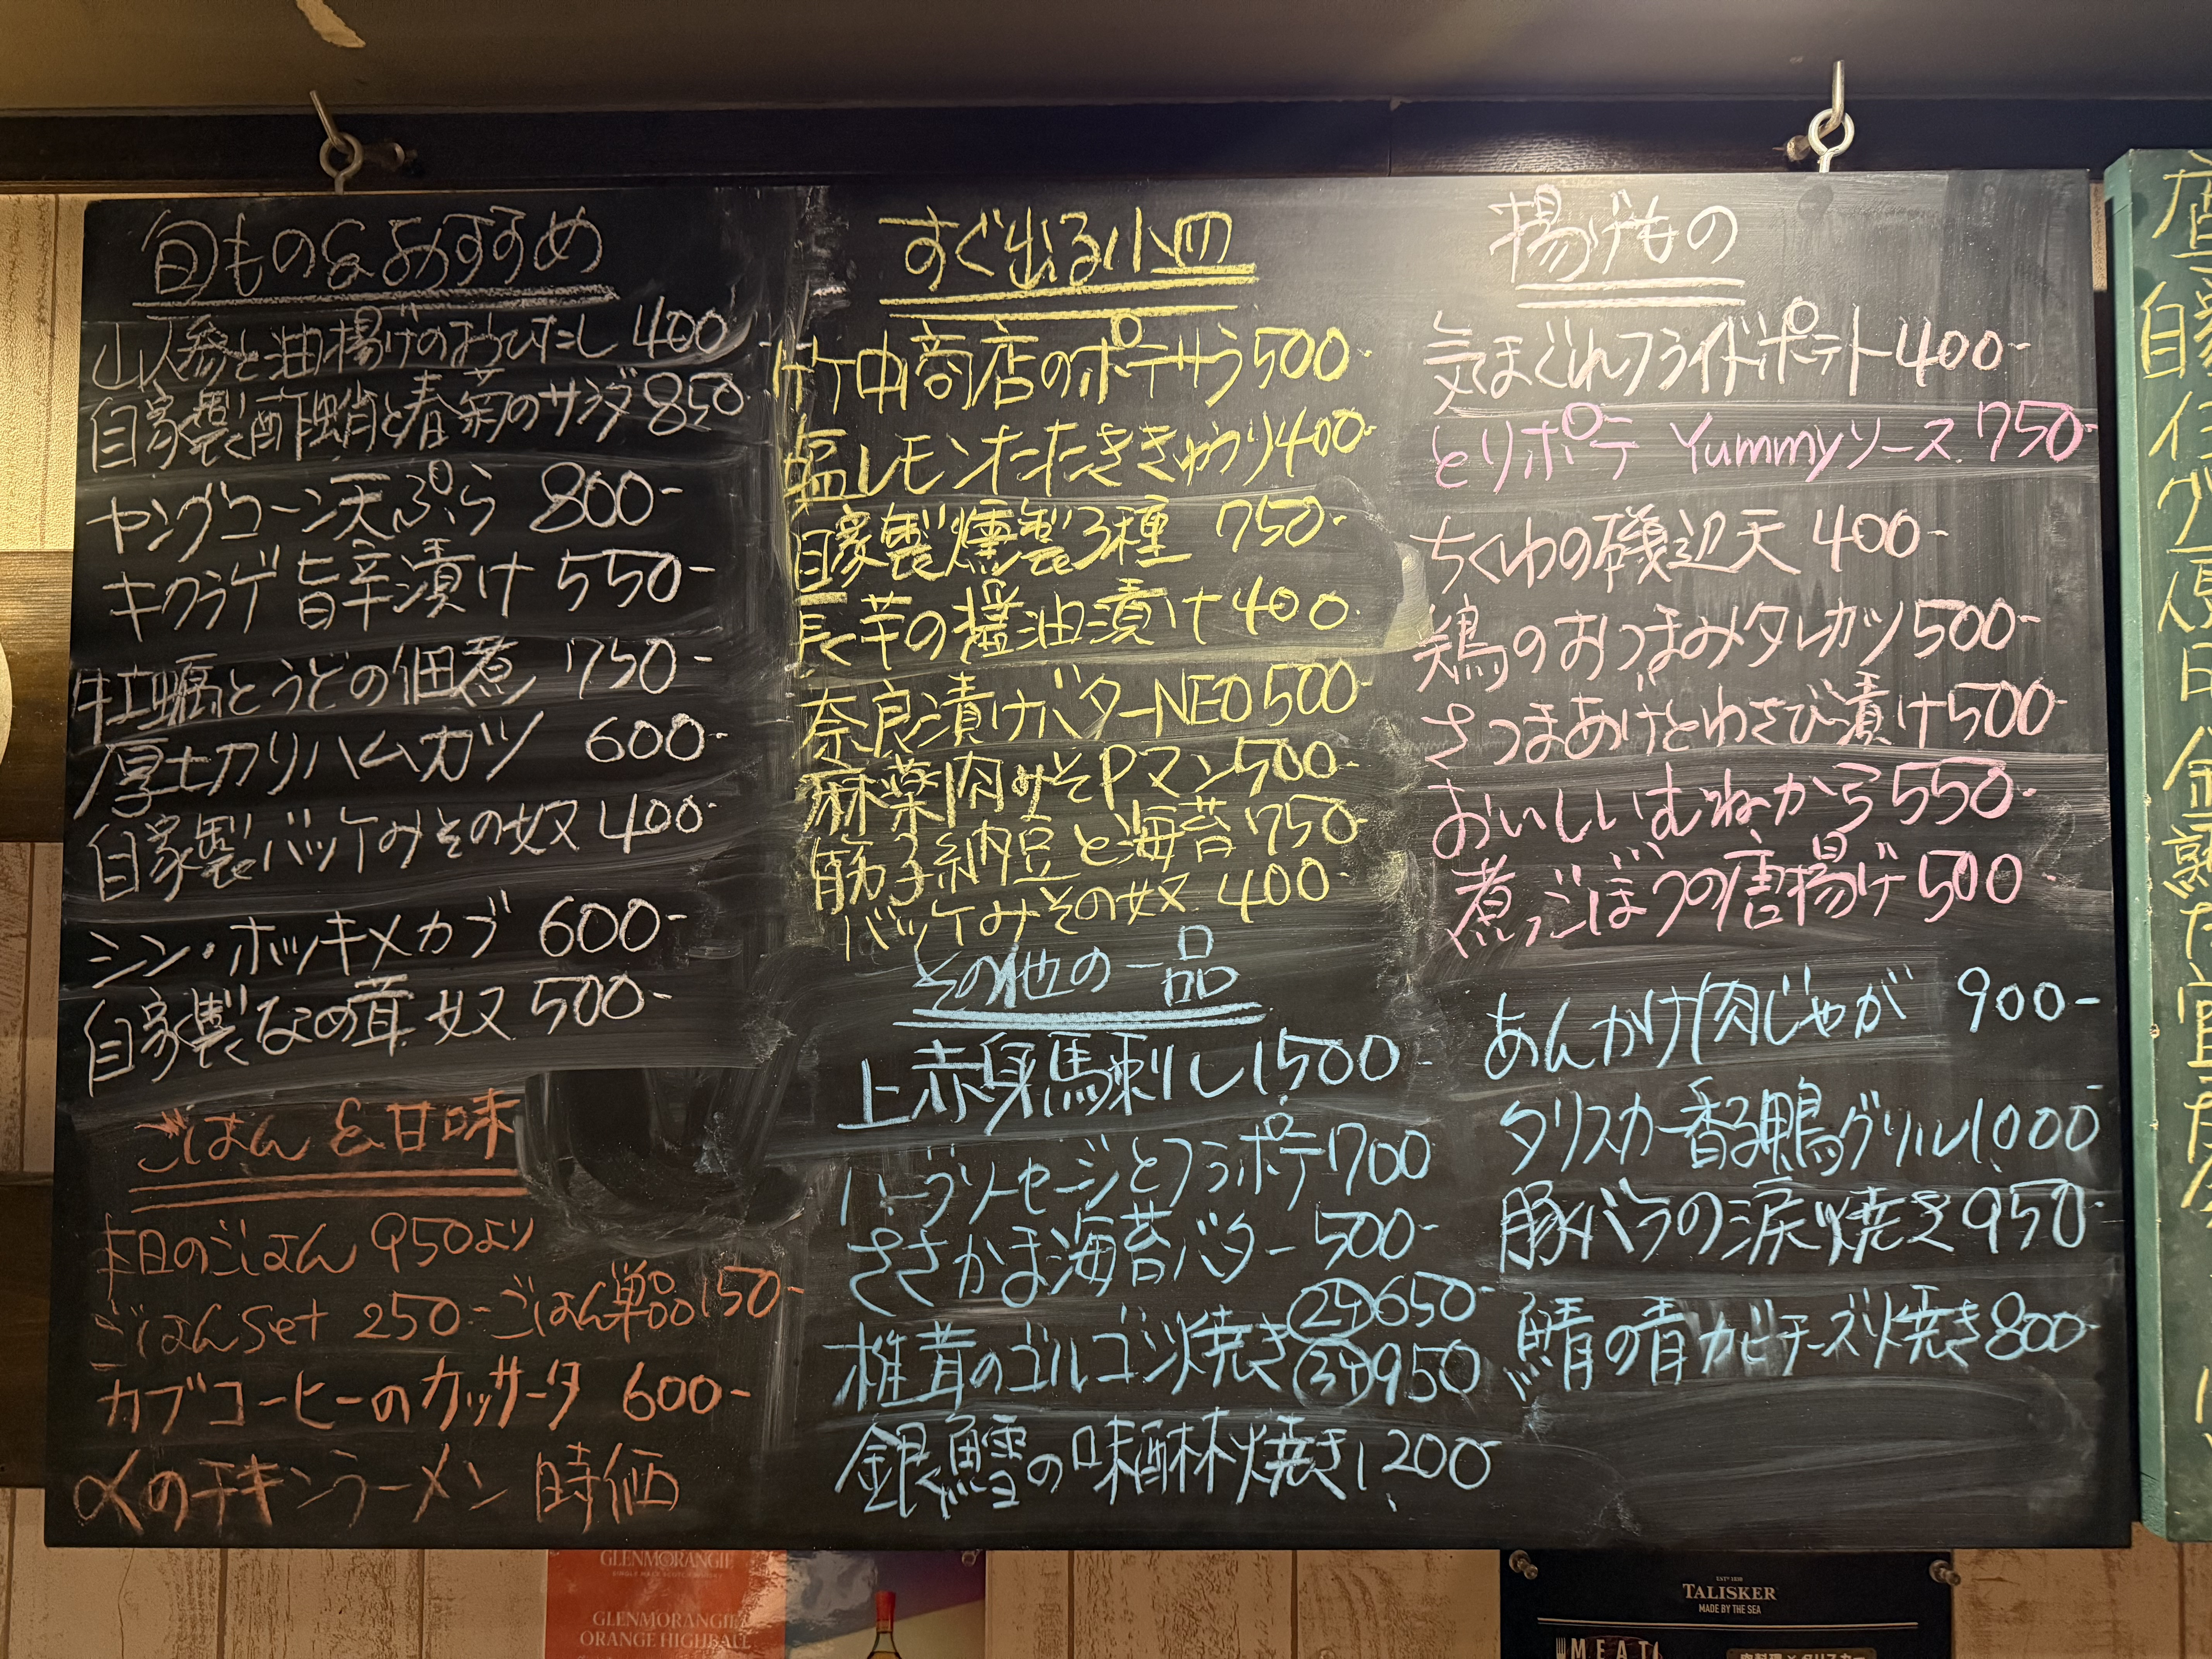 旬もの&おすすめ
山人参と油揚げのおひたし 400
自家製酢蛸と春菊のサラダ 850
ヤングコーン天ぷら 800-
キクラゲ旨辛漬け 550-
牡蠣とうどの佃煮 750-
厚切りハムカツ 600-
自家製バッケみその奴 400-
シン・ホッキメカブ 600-
自家製なめ茸奴 500-
ごはん&甘味
本日のごはん 950より
ごはんset 250- ごはん単品150-
カブコーヒーのカッサータ 600-
〆のチキンラーメン 時価
すぐ出る小皿
竹中商店のポテサラ500-
塩レモンたたききゅうり400-
自家製燻製3種 750-
長芋の醤油漬け400-
奈良漬けバターNEO500-
麻薬肉みそPマン500-
筋子納豆と海苔750-
バッケみその奴 400-
その他の一品
上赤身馬刺し1,500-
ハーブソーセージとフラポテ700-
ささかま海苔バター 500-
椎茸のゴルゴン焼き 2ケ650-
3ケ950
銀鱈の味醂焼き1,200-
揚げもの
気まぐれフライドポテト400-
とりポテ Yummyソース 750-
ちくわの磯辺天 400-
鶏のおつまみタレカツ500-
さつまあげとわさび漬け500-
おいしいむねから550-
煮ごぼうの唐揚げ500-
あんかけ肉じゃが 900-
タリスカー香る鴨グリル1,000-
豚バラの涙焼き950-
鯖の青カビチーズ焼き800-
GLENMORANGIE
SINGLE MALT SCOTCH WHISKY
GLENMORANGIE
ORANGE HIGHBALL
EST° 1830
TALISKER
MADE BY THE SEA
MEAT